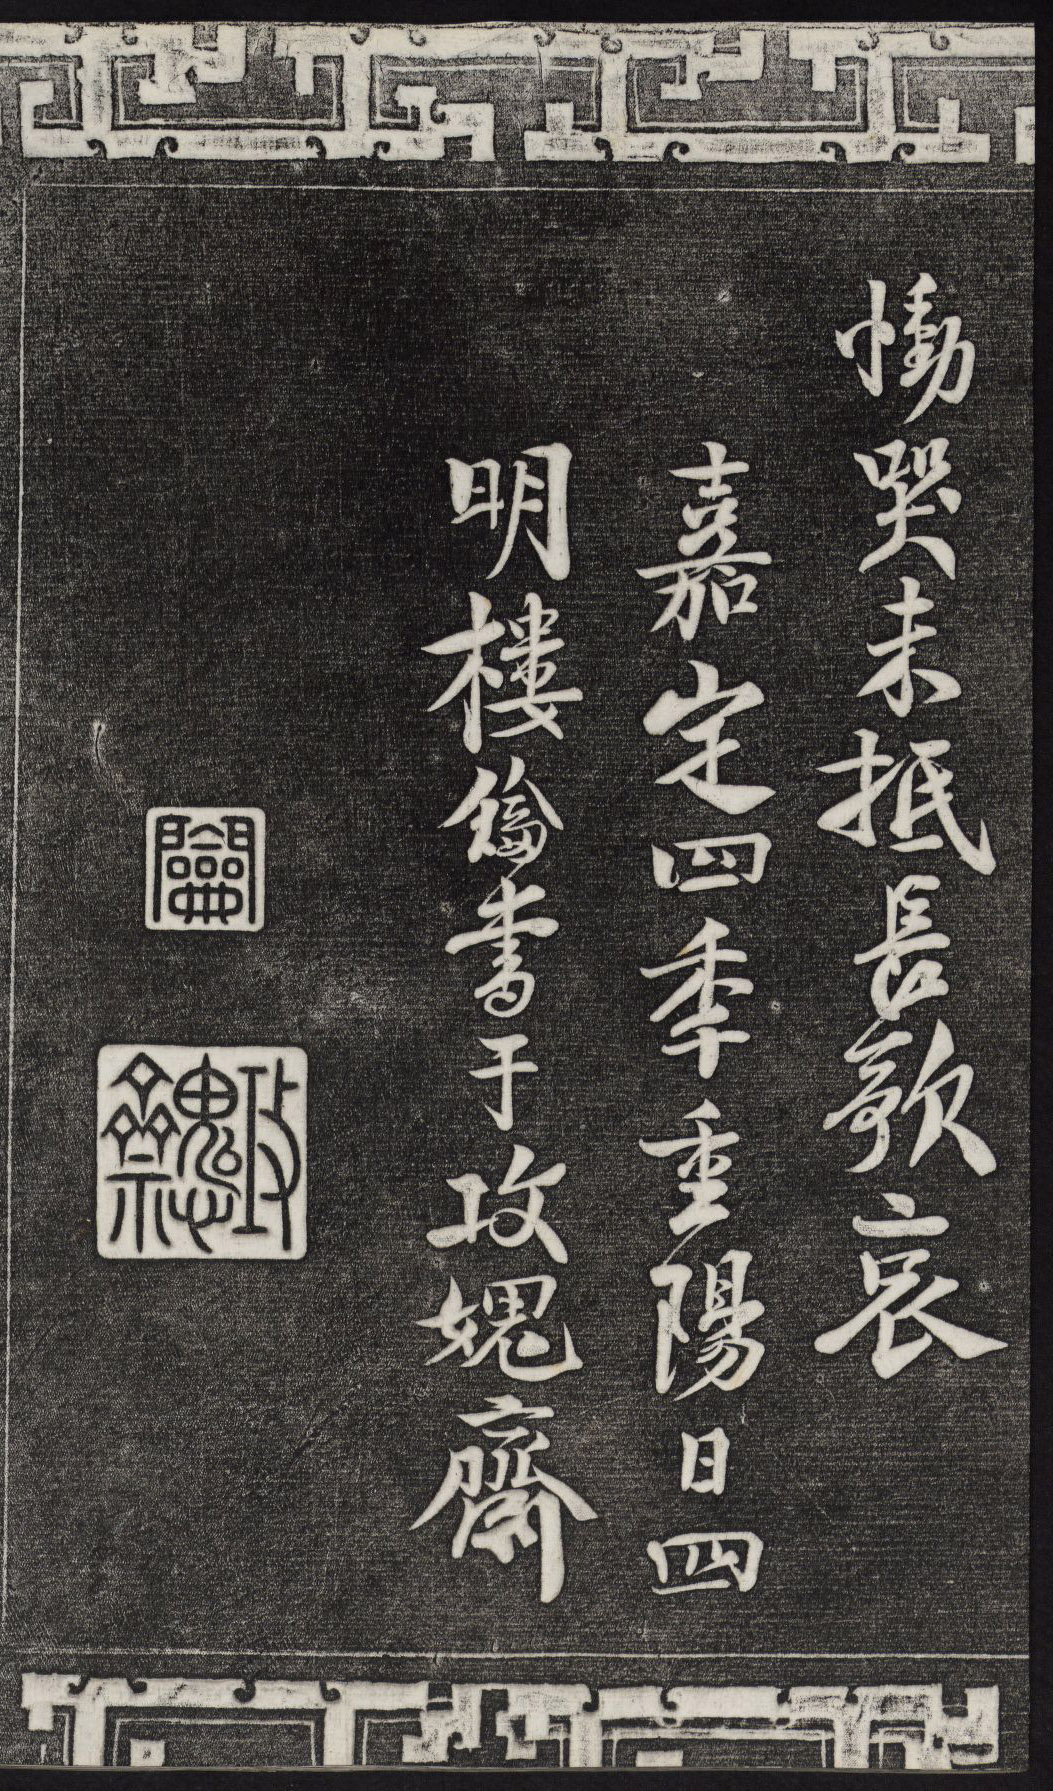 慟哭未抵長歌哀
嘉定四季重陽日四
明樓鑰書于攻媿齋
鑰
攻媿齋